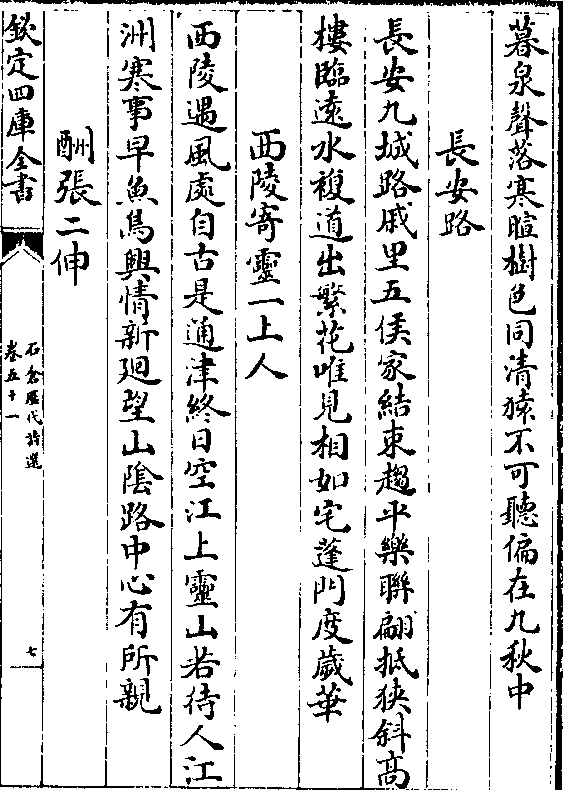 暮泉聲落寒暄樹色同清猿不可聽偏在九秋中
長安路
長安九城路戚里五侯家結束趨平樂聯翩抵狹斜高
樓臨遠水複道出繁花唯見相如宅蓬門度歲華
西陵寄靈一上人
西陵遇風處自古是通津終日空江上靈山若待人江
洲寒事早魚鳥興情新廻望山陰路中心有所親
酬張二仲
欽定四庫全書
石倉歷代詩選
卷五十一
七